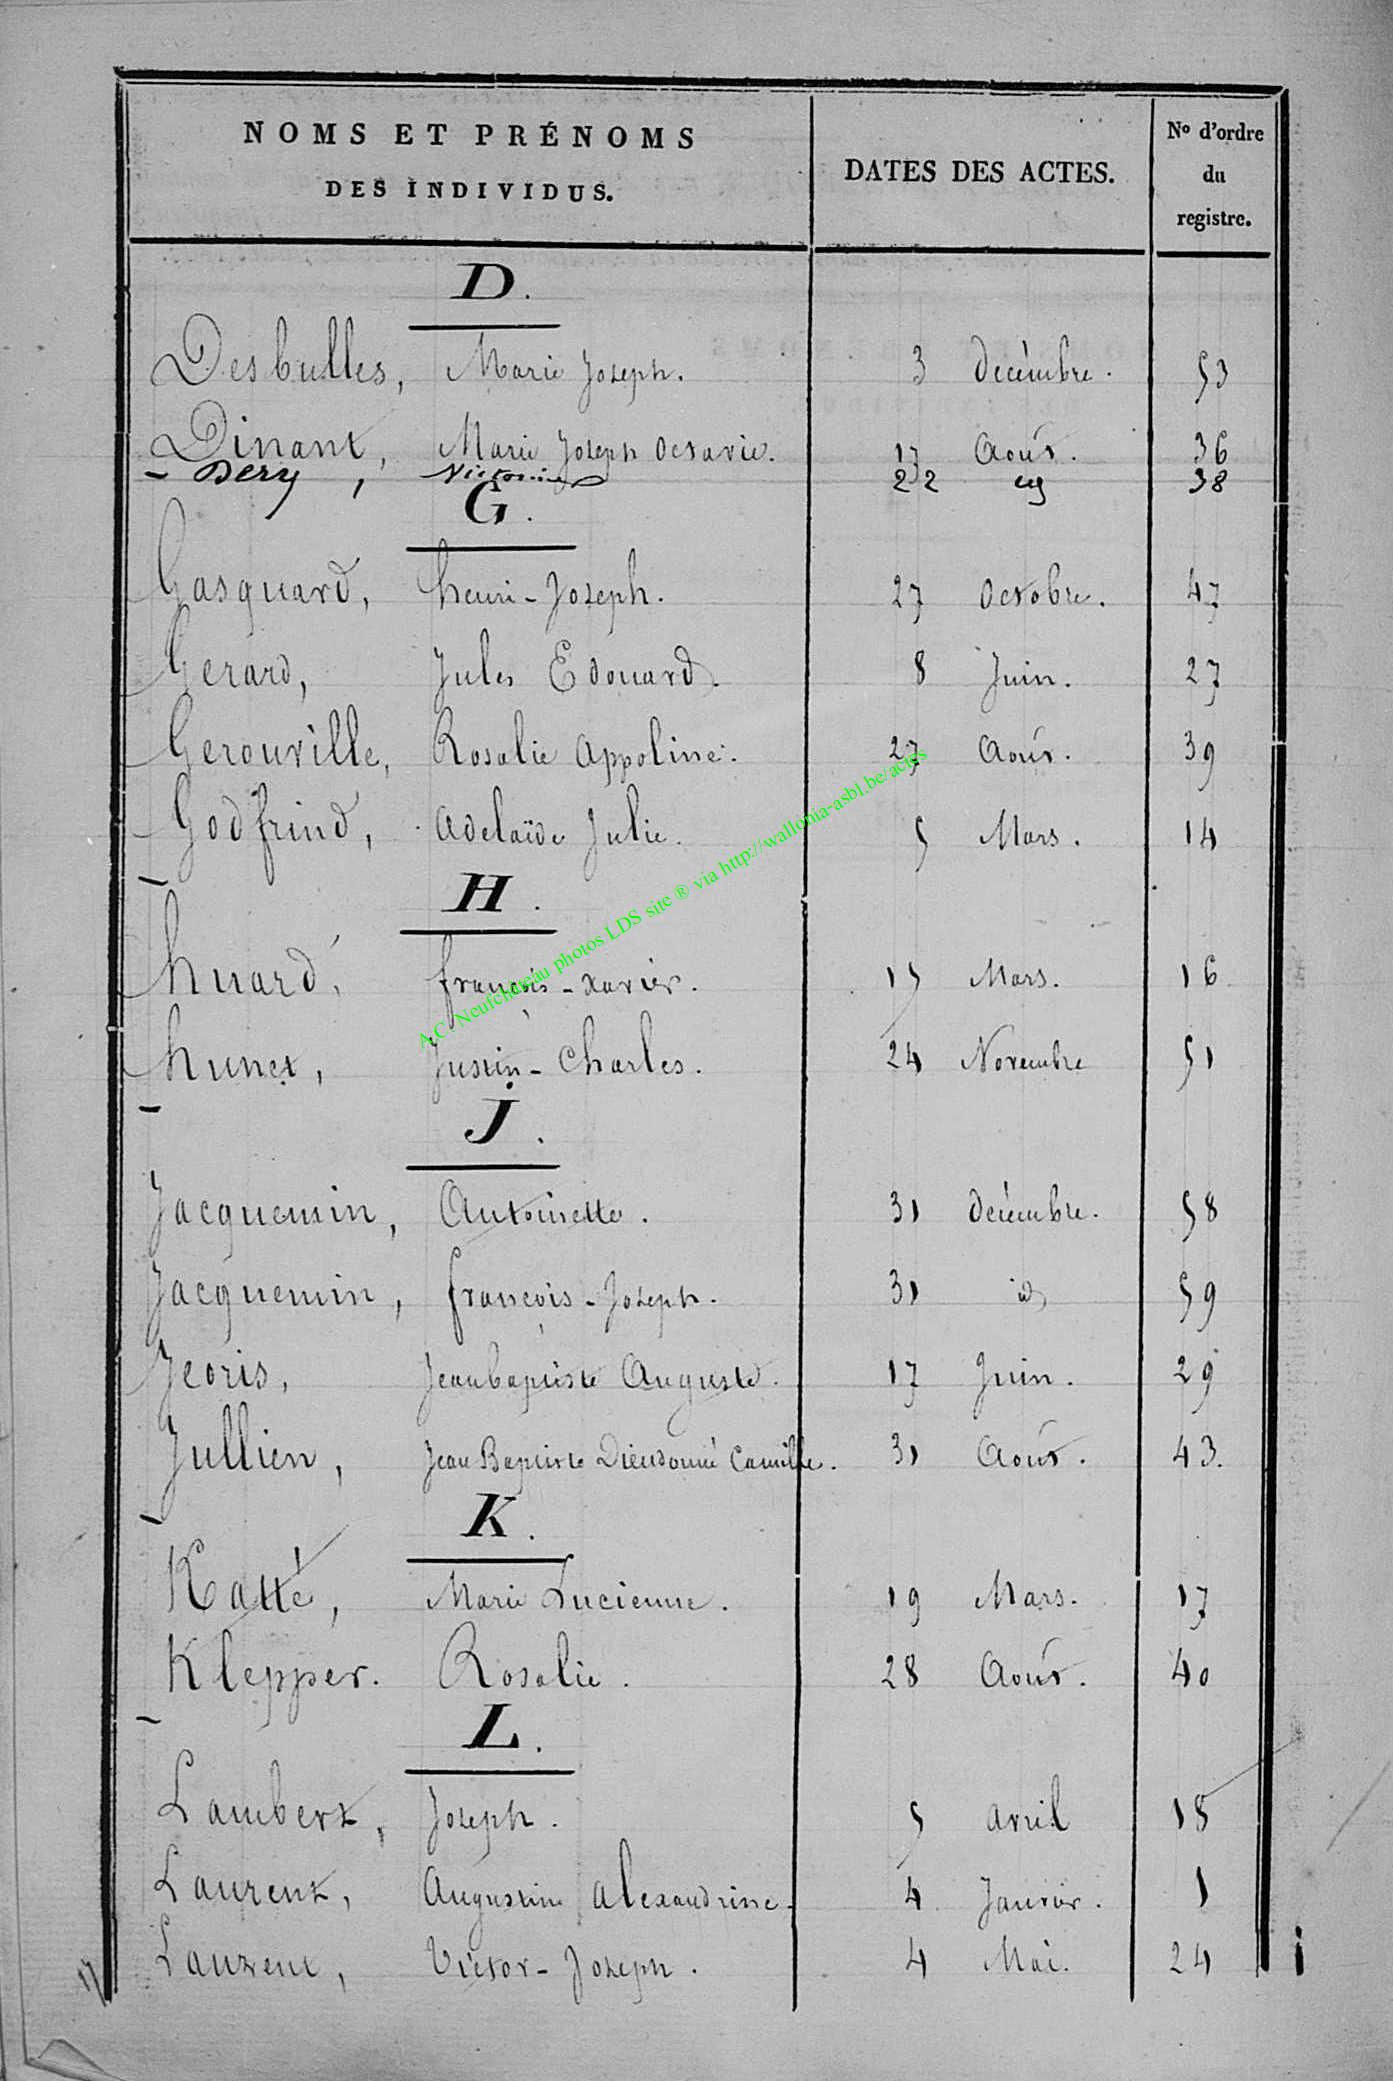 NOMS ET PRÉNOMS
DES INDIVIDUS.
DATES DES ACTES.
No d'ordre
du
registre.
D.
Desbulles, Marie Joseph. 3 Décembre. 53
Dinant, Marie Joseph Octavie. 17 Août. 36
- Dery, Victorine 22 38
G.
Gasquard, henri-Joseph. 27 Octobre. 47
Gerard, Jules Edouard. 8 Juin. 27
Gerouville, Rosalie Appoline. 27 Août. 39
Godfrind, Adelaïde Julie. 5 Mars. 14
H.
huard, françois-xavier. 15 Mars. 16
hunet, Justin-Charles. 24 Novembre 51
J.
Jacquemin, Antoinette. 31 Décembre. 58
Jacquemin, françois-Joseph. 31 id 59
Jeoris, Jeanbaptiste Auguste. 17 Juin. 29
Jullien, Jean Baptiste Dieudonné Camille. 31 Août. 43.
K.
Katté, Marie Lucienne. 19 Mars. 17
Klepper. Rosalie. 28 Août. 40
L.
Lambert, Joseph. 5 avril 18
Laurent, Augustine alexandrine. 4 Janvier. 1
Laurent, Victor-Joseph. 4 Mai. 24
A.C. Neufchâteau photos LDS site ® via http://wallonia-asbl.be/actes